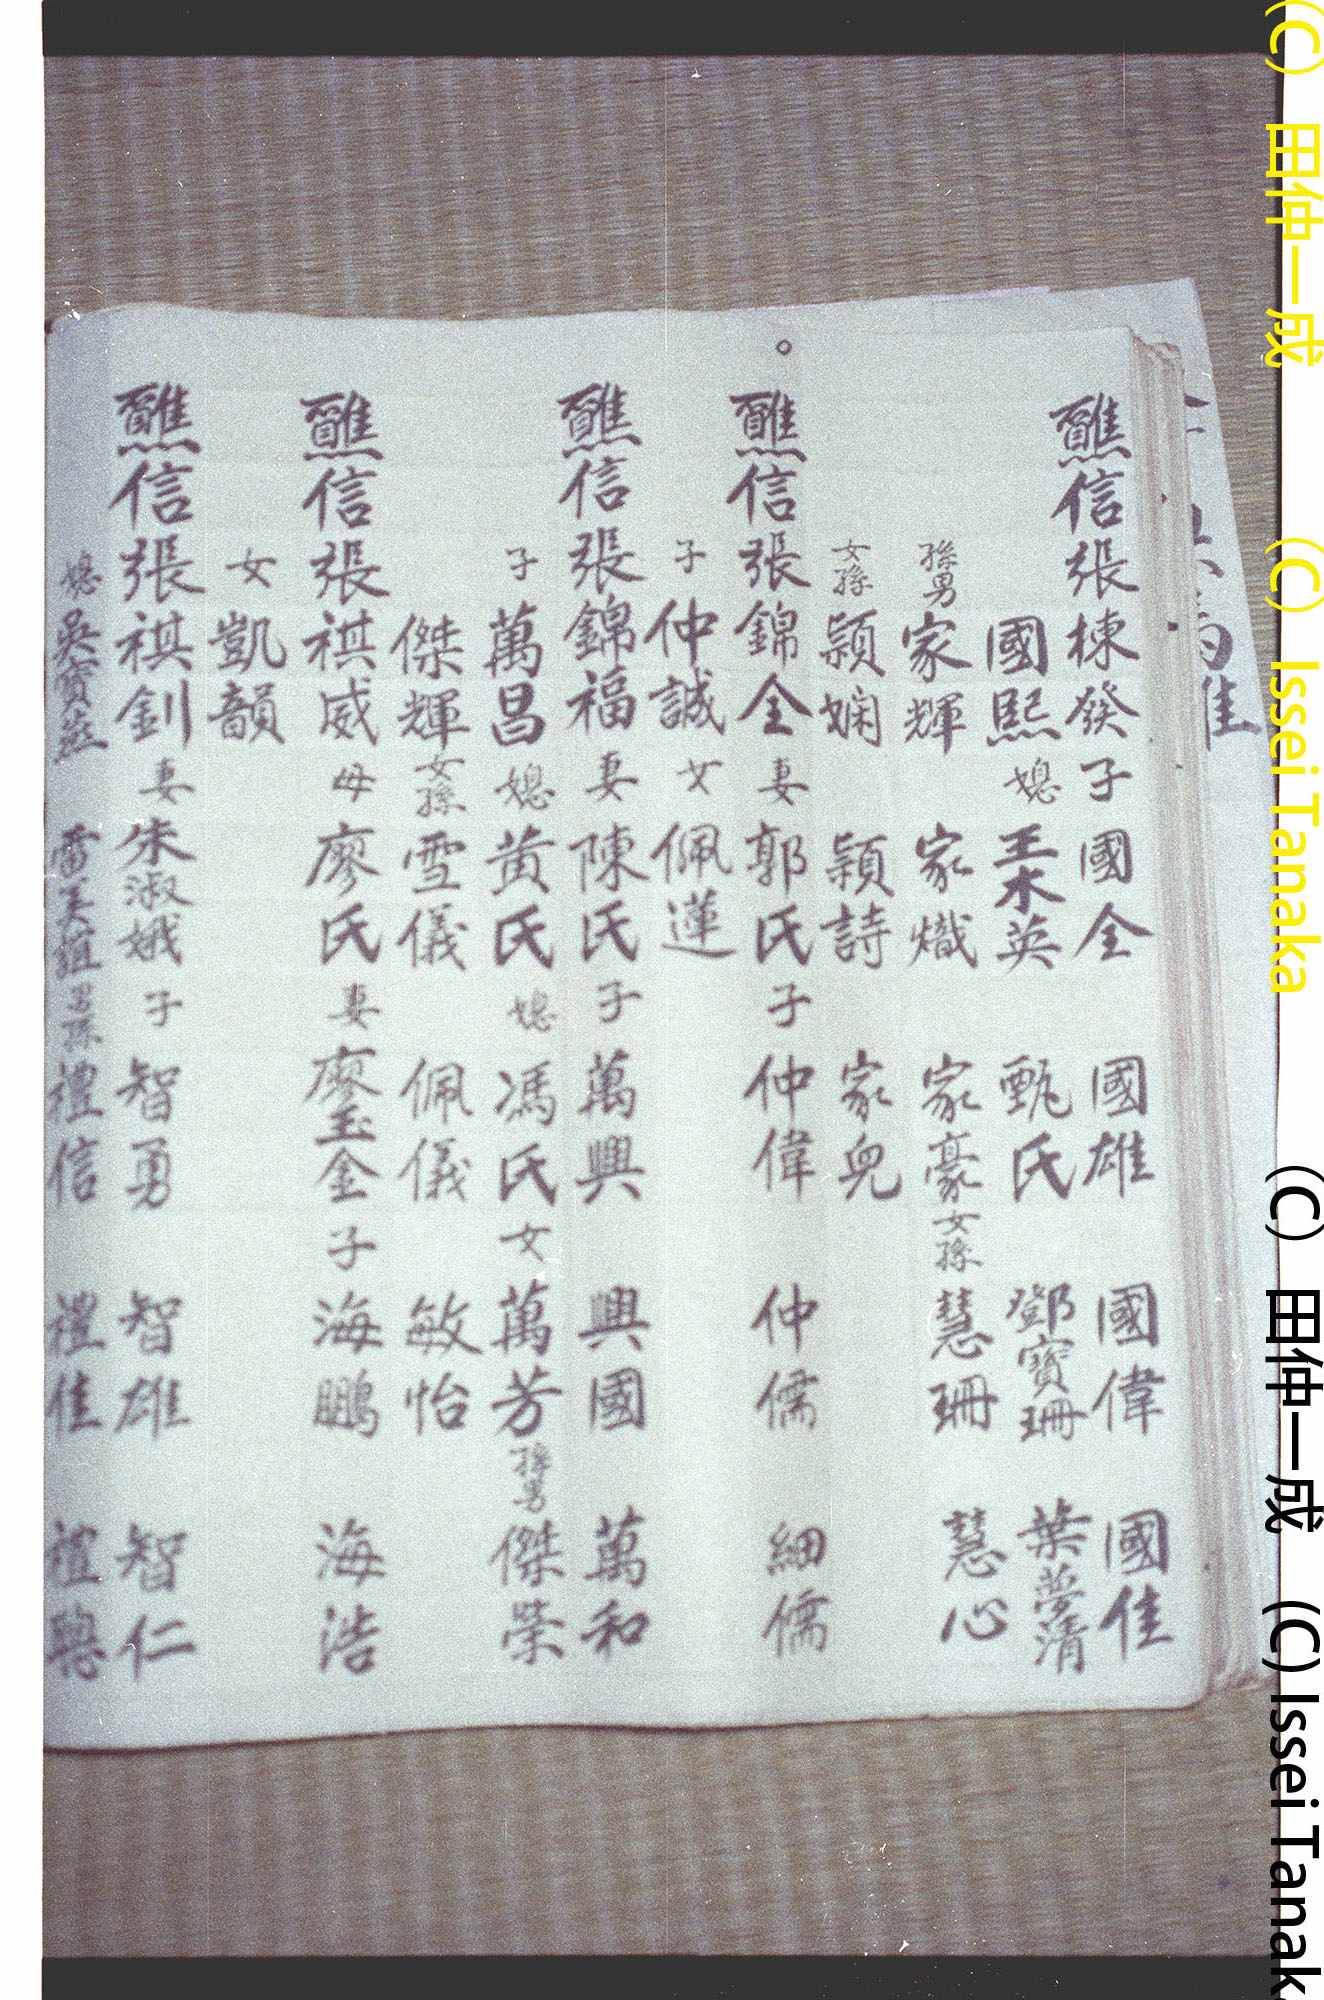 醮信張棟發子國全 國雄 國偉 國佳
國熙媳王木英 甄氏 鄧寶珊 葉夢清
孫男家輝 家熾 家豪女孫慧珊 慧心
女孫潁嫻 潁詩 家兒
。醮信張錦全妻郭氏子仲偉 仲儒 細儒
子仲誠女佩蓮
醮信張錦福妻陳氏子萬興 興國 萬和
子萬昌媳黃氏媳馮氏女萬芳孫男傑榮
傑輝女孫雪儀 佩儀 敏怡
醮信張祺威母廖氏妻廖玉金子海鵬 海浩
女凱韻
醮信張祺釗妻朱淑娥子智勇 智雄 智仁
媳吳寶 雷美誼男孫禮信 禮佳 禮聰
(C) 田仲一成 (C) Issei Tanaka
(C) 田仲一成 (C) Issei Tanak